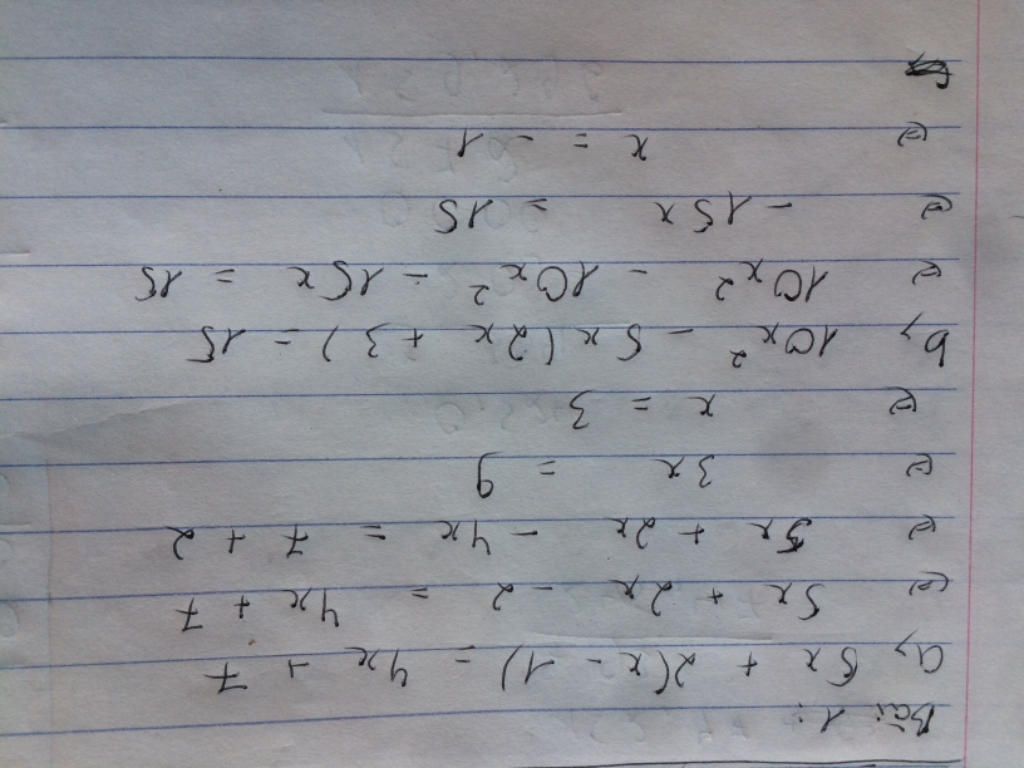 Bài 1:
a, 5x + 2(x - 1) = 4x + 7
⇔ 5x + 2x - 2 = 4x + 7
⇔ 5x + 2x - 4x = 7 + 2
⇔ 3x = 9
⇔ x = 3
b, 10x² - 5x(2x + 3) = 15
⇔ 10x² - 10x² - 15x = 15
⇔ -15x = 15
⇔ x = -1